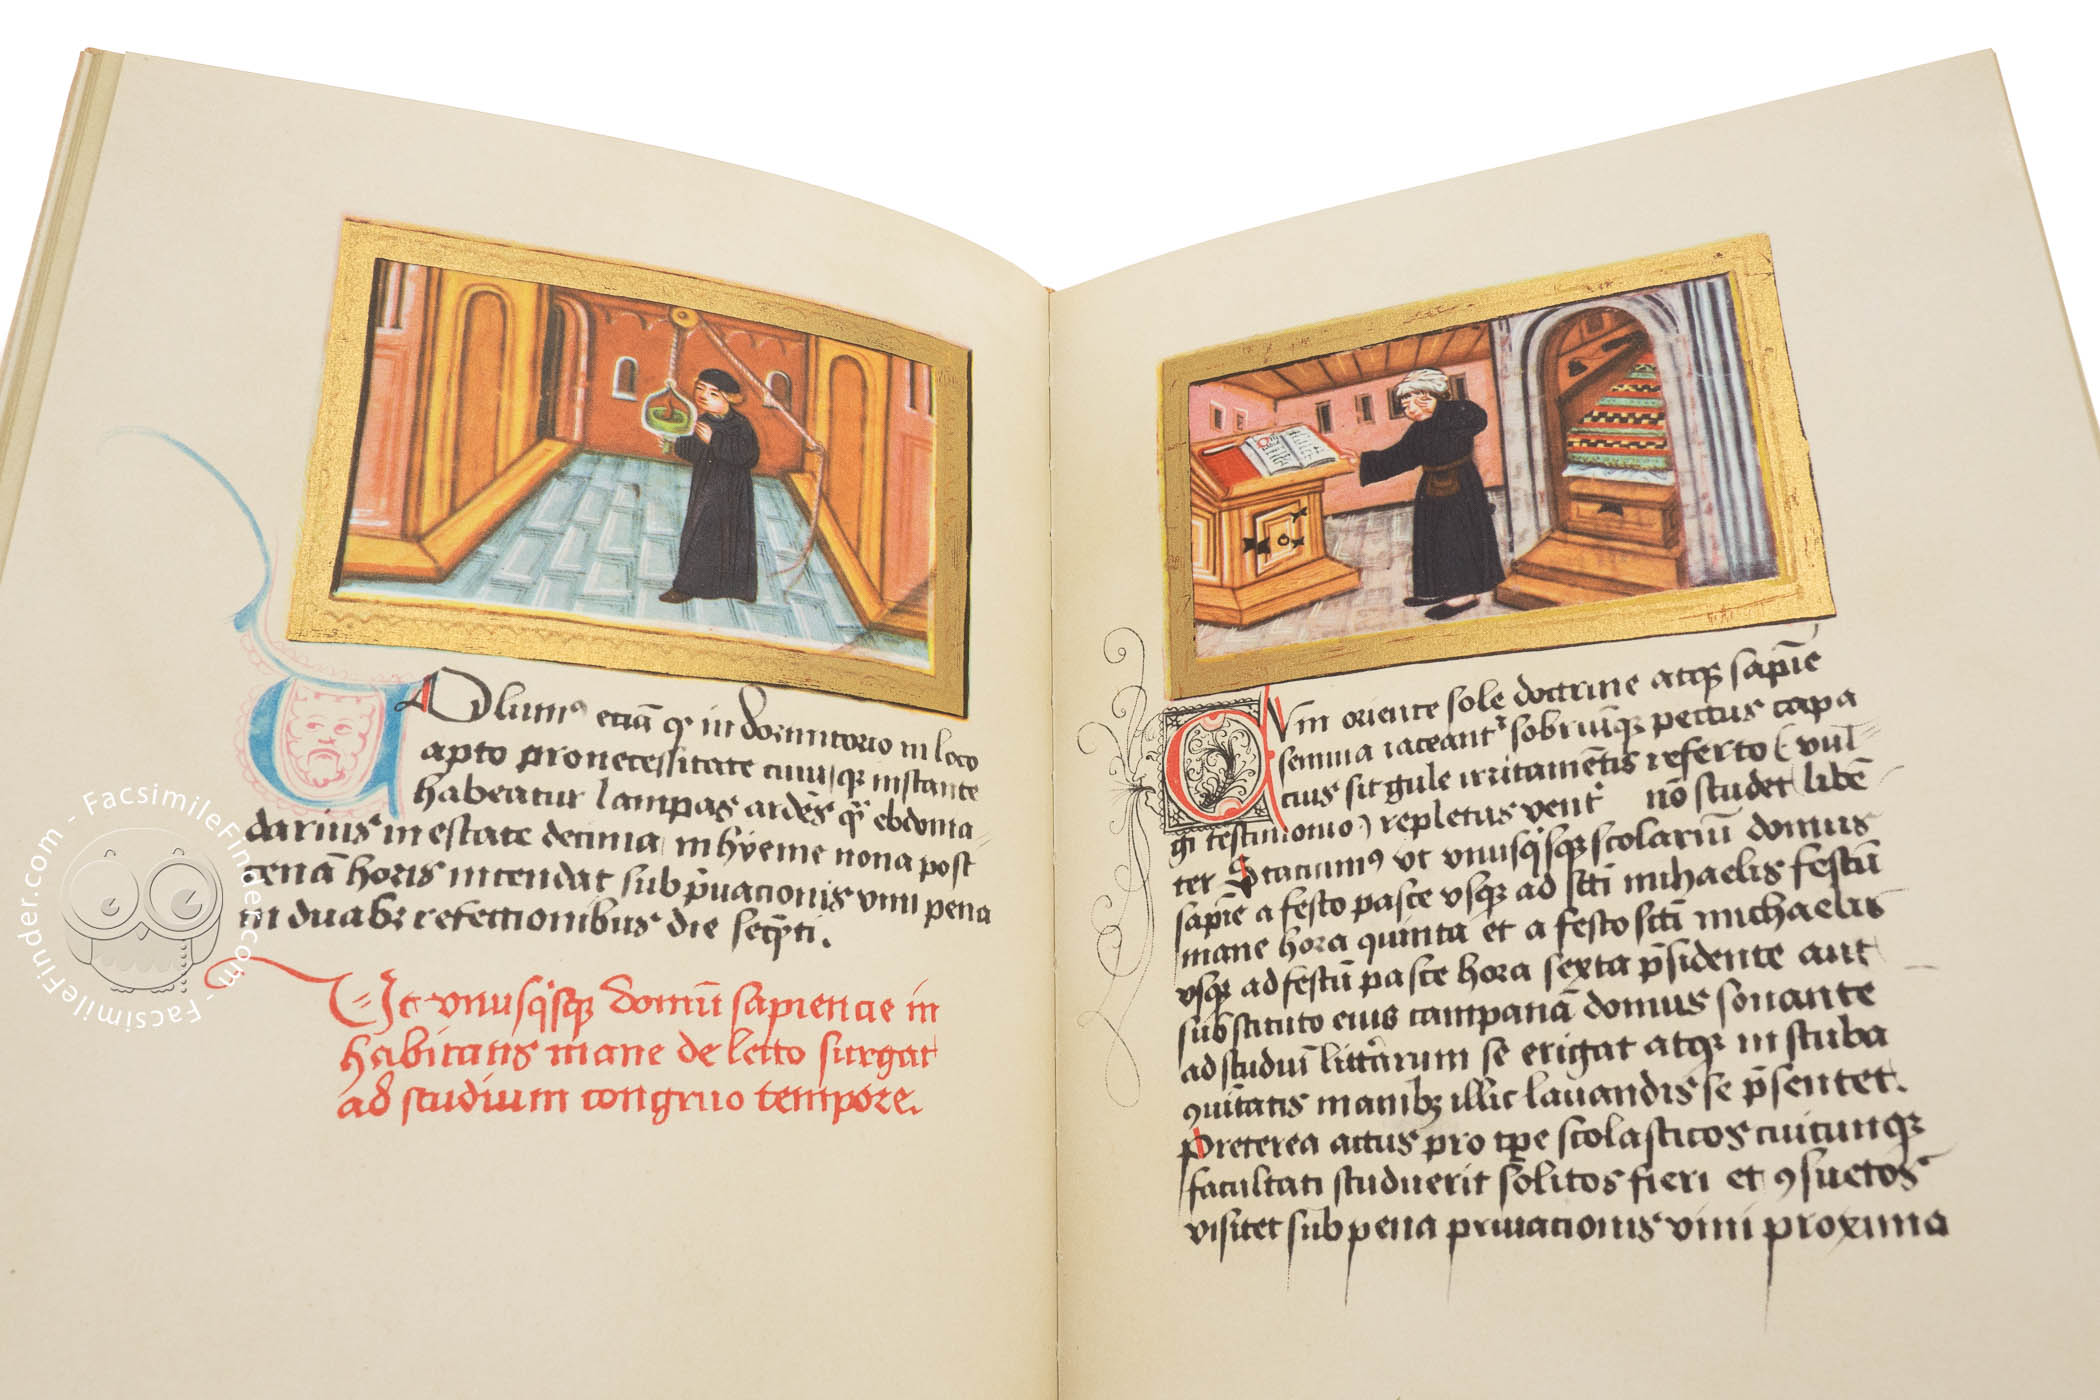 Volumus eciā qȝ in dormitorio in loco
apto pro necessitate cuiusqȝ instante
habeatur lampas ardēs qȝ ebdoma-
darius in estate decima, in hyeme nona post
cenā horis incendat sub pͬuacionis vini pena
in duabȝ refectionibus die seqͣti.
It vnusqͥsqȝ domū sapiencie in
habitatis mane de lecto surgat
ad studium congruo tempore.
Cum oriente sole doctrine atqȝ sapīe
semina iaceantͬ sobriūqȝ pectus capa
cius sit gule irritamētis referto (vul-
gi testimonio) repletus ventͬ nō studet libē
ter Statuimꝰ vt vnusqͥsqȝ scolariū domus
sapīe a festo pasce vsqȝ ad scti michaelis festū
mane hora quinta et a festo sctī michaelis
vsqȝ ad festū pasce hora sexta pͬsidente aut
substituto eius campanā domus sonante
ad studiū litterarum se erigat atqȝ in stuba
ꝯuītatis manibȝ illic lauandis se pͬsentet.
Preterea actus pro tꝑe scolasticos cuicunqȝ
facultati studuerit solitos fieri et ꝯsuetos
visitet sub pena priuacionis vini proxima
FacsimileFinder.com - FacsimileFinder.com - FacsimileFinder.com